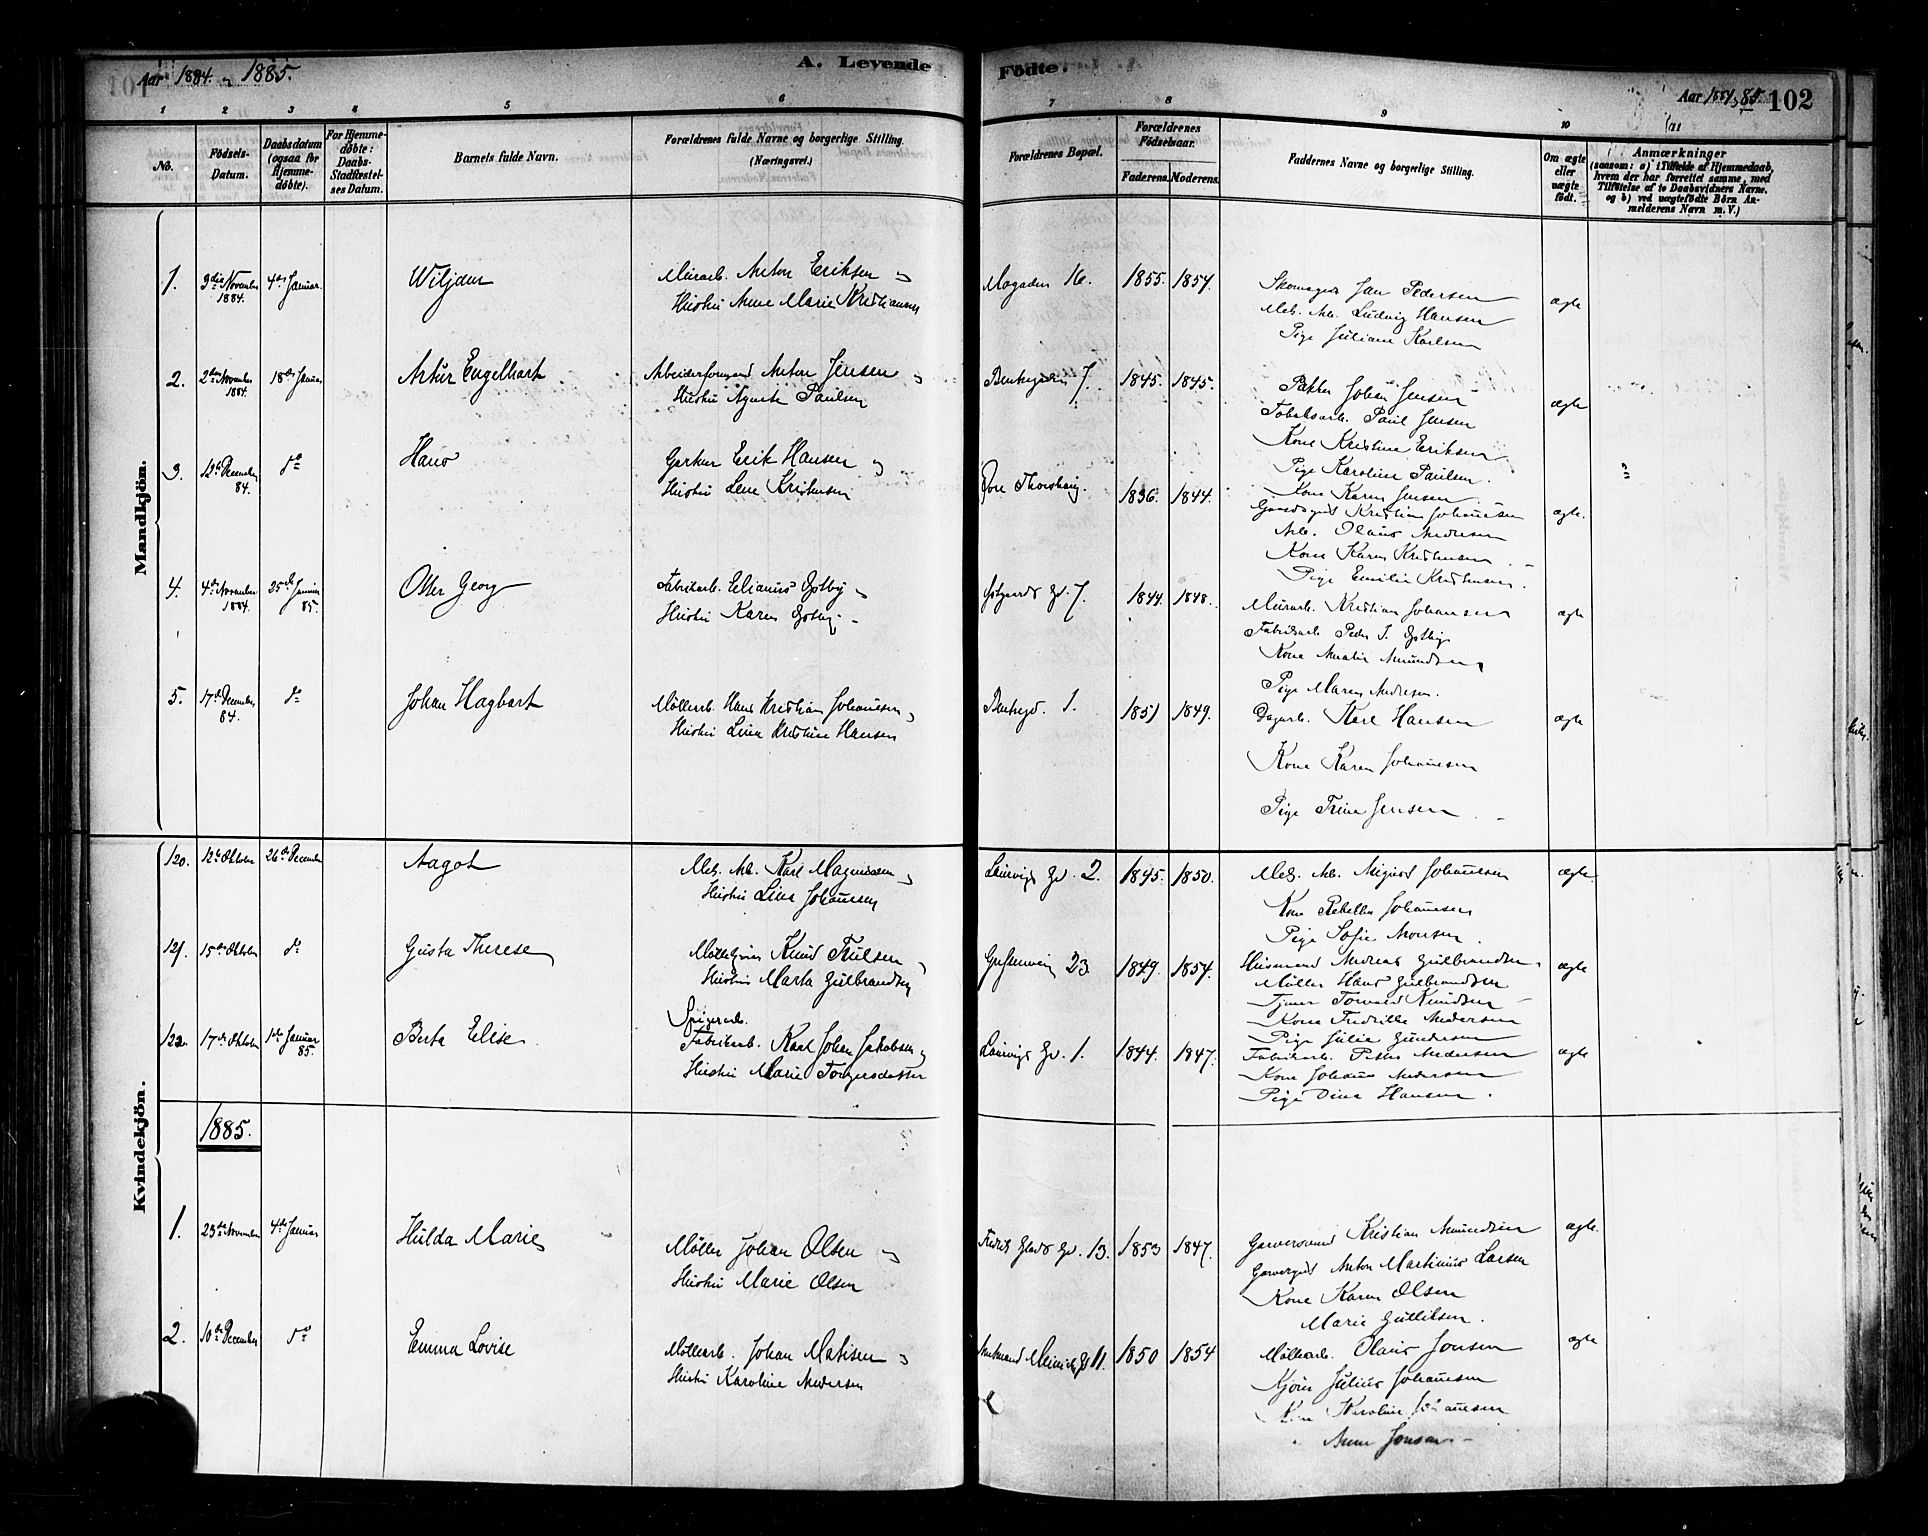 101
Aar 1884. og 1885.
A. Levende
Födte.
Aar 1884 85. 102
1 2 3 4 5 6
7 8 9 10 11
No.
Födsels-Datum.
Daabsdatum (ogsaa for Hjemme-döbte).
For Hjemme-döbte: Daabs-Stadfæstel-ses Datum.
Barnets fulde Navn.
Forældrenes fulde Navne og borgerlige Stilling.
(Næringsvei.)
Forældrenes Bopæl.
Forældrenes Födselsaar.
Faderens. Moderens.
Faddernes Navne og borgerlige Stilling.
Om ægte eller uægte födt.
Anmærkninger
(saasom: a) i Tilfælde af Hjemmedaab,
hvem der har forrettet samme, med
Tilföielse af to Daabsvidners Navne.
og b) ved uægtefödte Börn An-
melderens Navn m. V.)
Mandkjön.
1. 3die November 1884. 4de Januar.
Murarb. Anton Eriksen og
Hustru Anne Marie Kristiansen
16. 1855. 1857.
Skomager Jan Pedersen
Mek. Arb. Ludvig Hansen
Pige Juliane Karlsen
ægte
2. 2den November 1884. 18de Januar
Artur Engelhart
Arbeiderformand Anton Jensen og
Hustru Agnete Paulsen
7. 1845. 1845.
Pakker Johan Jensen
Tobaksarb. Paul Jensen
Kone Kristine Eriksen
Pige Karoline Paulsen.
Kone Karen Jensen
ægte
3. 12te December 84. do
Hans
Garver Erik Hansen og
Hustru Lene Kristensen
1836. 1844.
Gaardsgut Kristian Johannesen
Arb. Olaus Andresen
Kone Karen Kristensen
Pige Emilie Kristensen.
ægte.
4. 4de November 1884. 25de Januar 85.
Otter Georg
Fabrikarb. Elianus Østby og
Hustru Karen Østby.
7. 1844. 1848.
Murarb. Kristian Johansen
Fabrikarb. Peder J. Østby
Kone Amalie Amundsen
Pige Maren Andresen.
ægte
5. 17de December 84. do
Johan Hagbart
Møllerarb. Hans Kristian Johannesen og
Hustru Lina Kristine Hansen
1. 1851 1849.
Dagarb. Karl Hansen
Kone Karen Johannesen
Pige Trine Jensen
ægte
Kvindekjön.
120. 12te Oktober 26de December
Aagot
Mek. Arb. Karl Magnussen og
Hustru Lina Johannesen
Laurvigs Gd. 2. 1845. 1850.
Mek. Arb. August Johannesen
Kone Rebekka Johannesen
Pige Sofie Monsen
ægte.
121. 15de Oktober do
Gusta Therese
Hustru Marta Gulbrandsen
23 1849. 1854.
Husmand Andreas Gulbrandsen
Møller Hans Gulbrandsen
Tjener Torvald Knudsen
Kone Fredrikke Andersen
Pige Julie Gundersen
ægte
122. 17de Oktober 1ste Januar 85.
Berta Elise.
Spigerarb.
Fabrikarb. Karl Johan Jakobsen og
Hustru Marie Torgersdatter
Laurvigs Gd. 1. 1844. 1847.
Fabrikarb. Petter Andersen
Kone Johanne Andersen
Pige Dina Hansen.
ægte
1885.
1. 23de November 4de Januar
Hulda Marie
Møller Johan Olsen og
Hustru Marie Olsen
13. 1853 1847.
Garversvend Kristian Amundsen
Garvergut Anton Martinius Larsen
Kone Karen Olsen
Marie Gulliksen.
ægte.
2. 10de December do
Emma Lovise
Møllearb. Johan Matisen og
Hustru Karoline Andersen
11. 1850 1854
Møllearb. Olaus Jonsen
Julius Johannesen
Kone Karoline Johannesen
Anne Jonsen
ægte